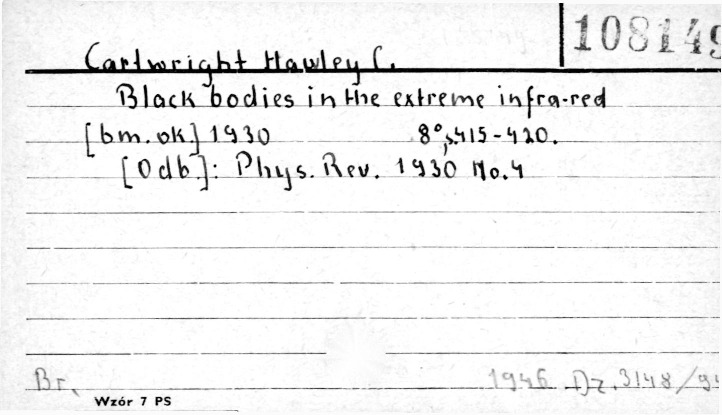 108149
Cartwright Hawley C.
Black bodies in the extreme infra-red
[bm. ok] 1930 8°, s. 415-420.
[Odb]: Phys. Rev. 1930 No. 4
Br. 1946 Dz. 3148/
Wzór 7 PS